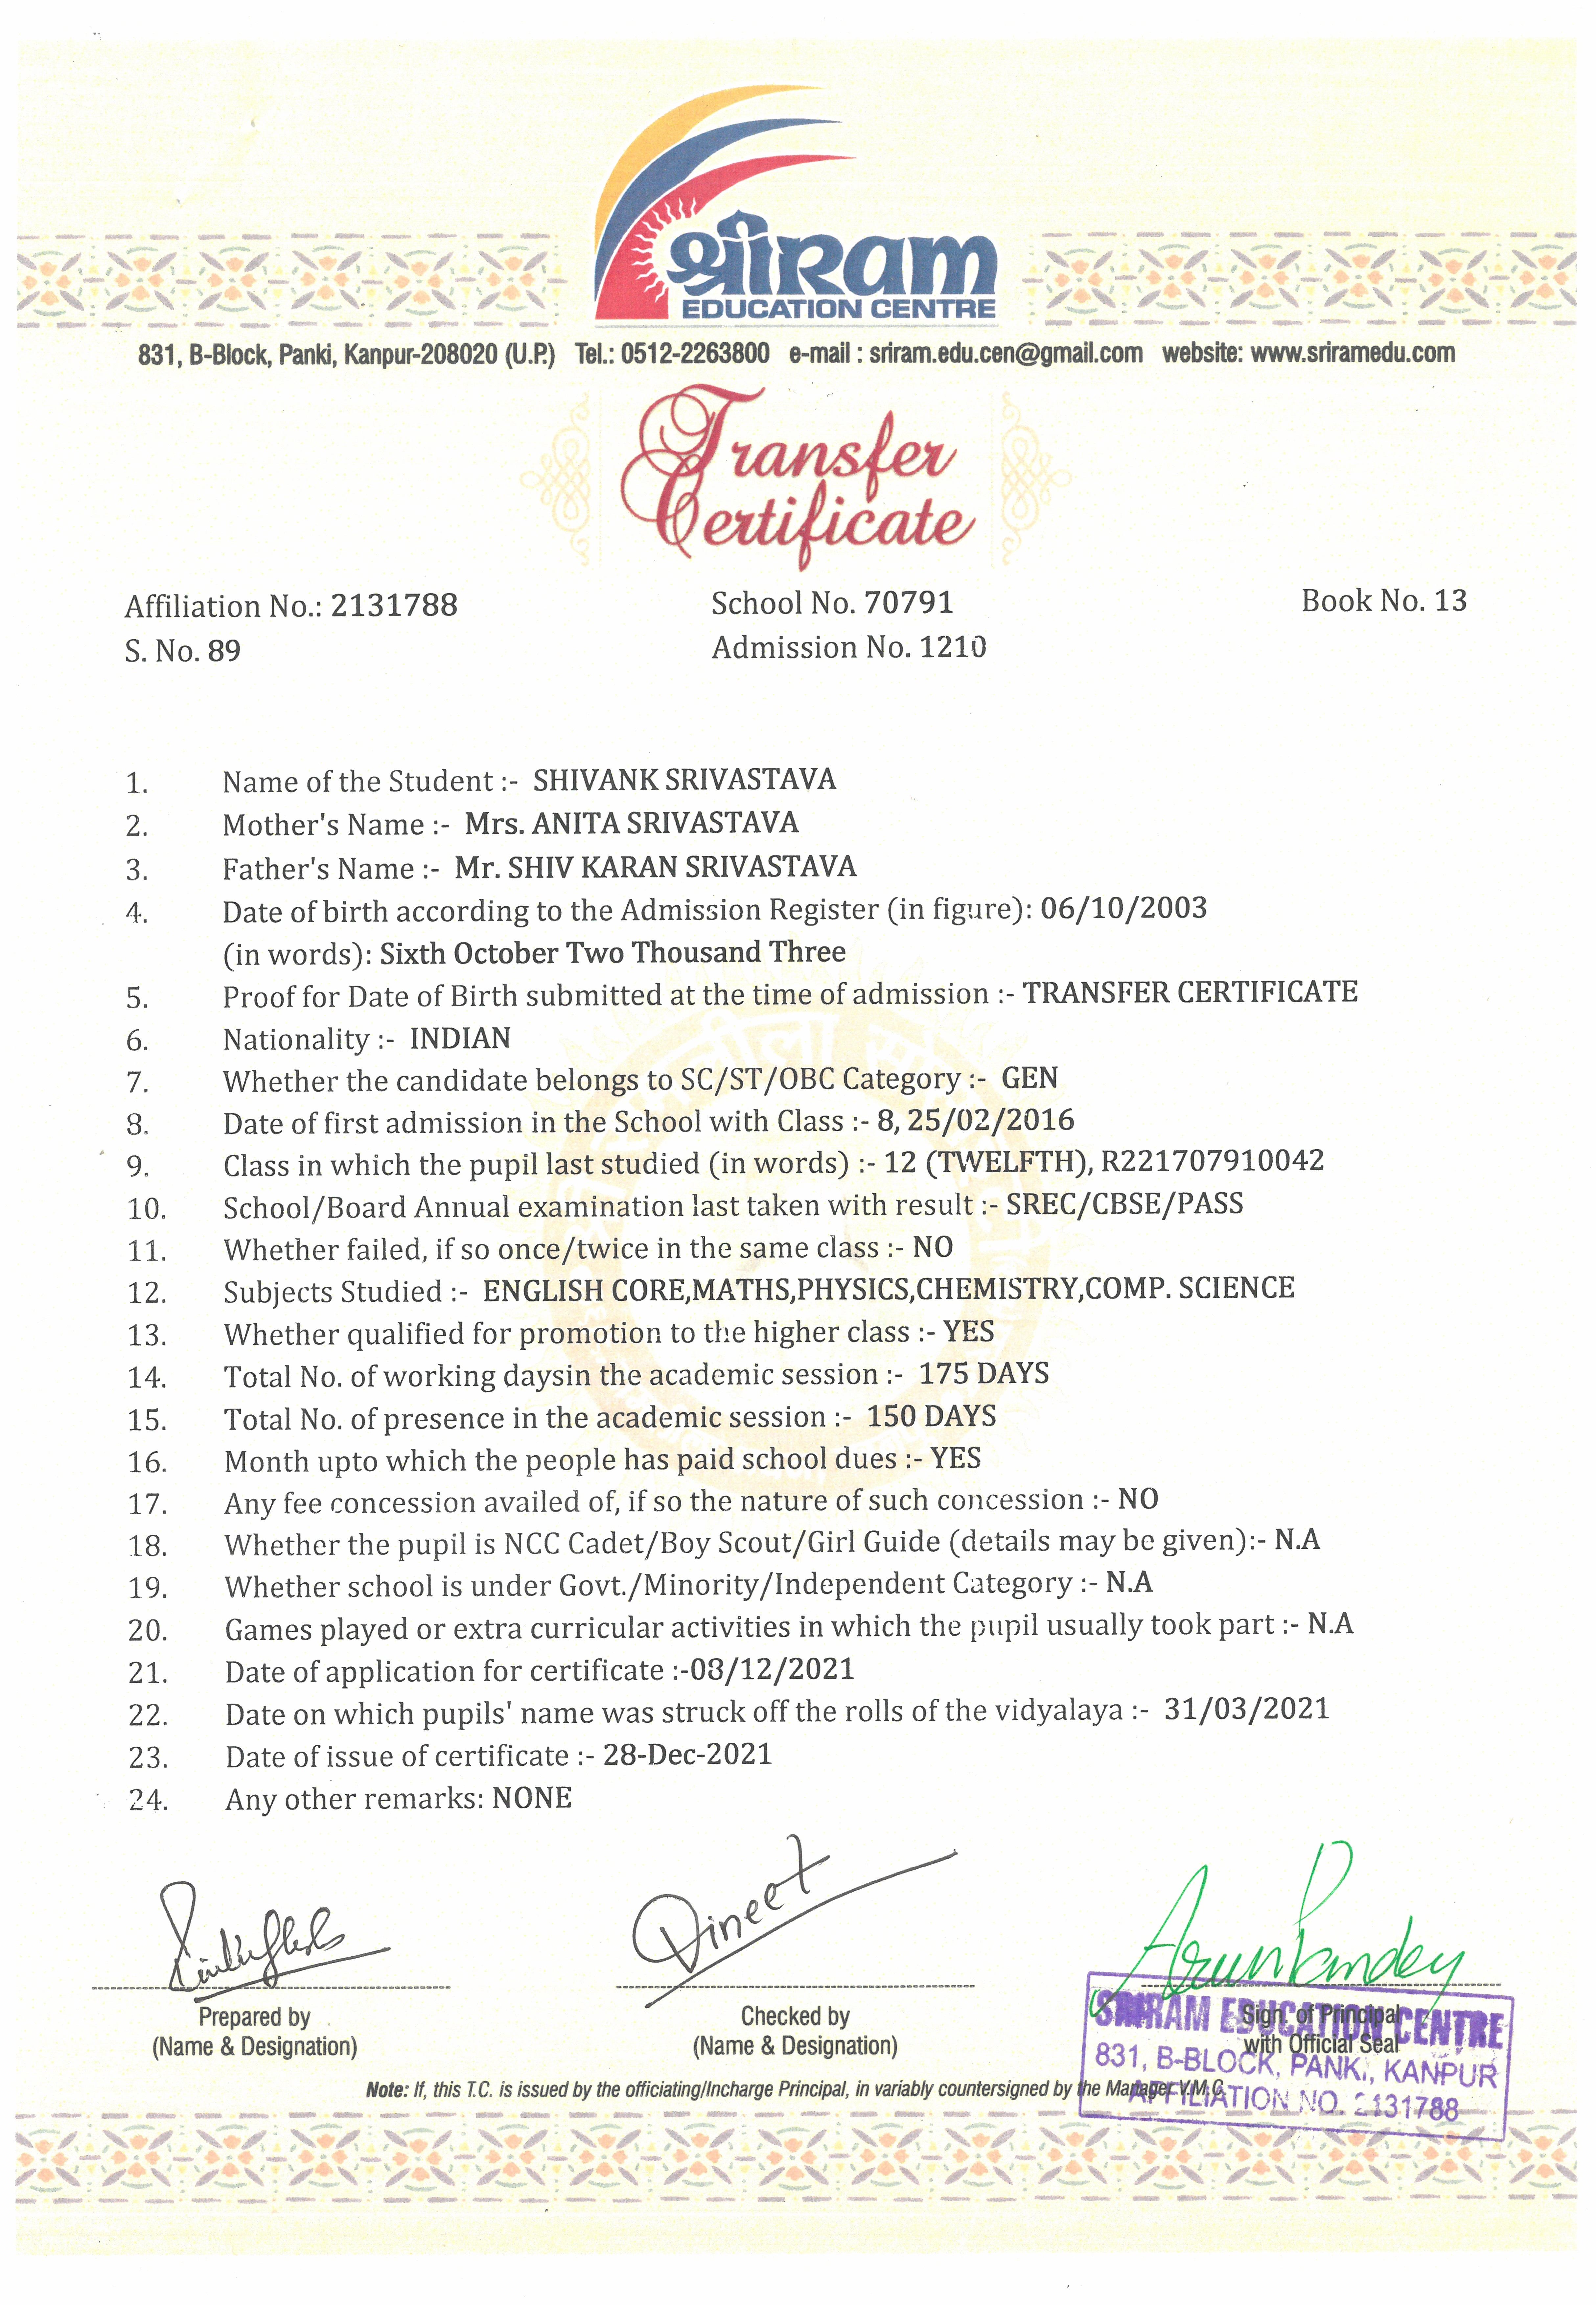 श्रीRam
EDUCATION CENTRE
831, B-Block, Panki, Kanpur-208020 (U.P.) Tel.: 0512-2263800 e-mail : sriram.edu.cen@gmail.com website: www.sriramedu.com
Transfer
Certificate
Affiliation No.: 2131788 School No. 70791 Book No. 13
S. No. 89 Admission No. 1210
1. Name of the Student :- SHIVANK SRIVASTAVA
2. Mother's Name :- Mrs. ANITA SRIVASTAVA
3. Father's Name :- Mr. SHIV KARAN SRIVASTAVA
4. Date of birth according to the Admission Register (in figure): 06/10/2003
(in words): Sixth October Two Thousand Three
5. Proof for Date of Birth submitted at the time of admission :- TRANSFER CERTIFICATE
6. Nationality :- INDIAN
7. Whether the candidate belongs to SC/ST/OBC Category :- GEN
8. Date of first admission in the School with Class :- 8, 25/02/2016
9. Class in which the pupil last studied (in words) :- 12 (TWELFTH), R221707910042
10. School/Board Annual examination last taken with result :- SREC/CBSE/PASS
11. Whether failed, if so once/twice in the same class :- NO
12. Subjects Studied :- ENGLISH CORE,MATHS,PHYSICS,CHEMISTRY,COMP. SCIENCE
13. Whether qualified for promotion to the higher class :- YES
14. Total No. of working daysin the academic session :- 175 DAYS
15. Total No. of presence in the academic session :- 150 DAYS
16. Month upto which the people has paid school dues :- YES
17. Any fee concession availed of, if so the nature of such concession :- NO
18. Whether the pupil is NCC Cadet/Boy Scout/Girl Guide (details may be given):- N.A
19. Whether school is under Govt./Minority/Independent Category :- N.A
20. Games played or extra curricular activities in which the pupil usually took part :- N.A
21. Date of application for certificate :-08/12/2021
22. Date on which pupils' name was struck off the rolls of the vidyalaya :- 31/03/2021
23. Date of issue of certificate :- 28-Dec-2021
24. Any other remarks: NONE
Vineet ArunPandey
Prepared by Checked by Sign. of Principal
(Name & Designation) (Name & Designation) with Official Seal
SRIRAM EDUCATION CENTRE
831, B-BLOCK, PANKI, KANPUR
AFFILIATION NO. 2131788
Note: If, this T.C. is issued by the officiating/Incharge Principal, in variably countersigned by the Manager V.M.C.